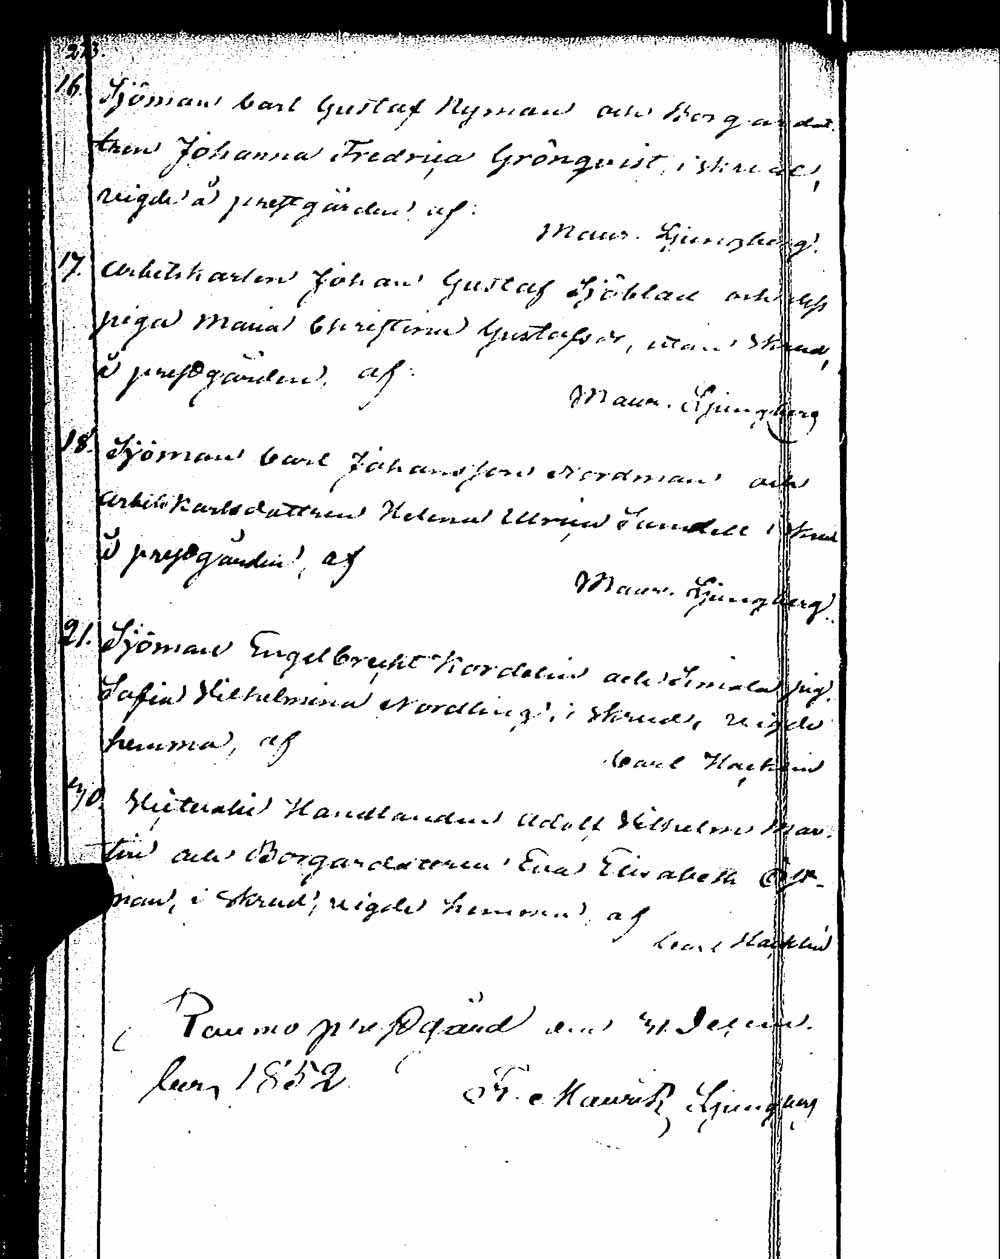 16. Sjöman Carl Gustaf Nyman och Borgaredot
tren Johanna Fredrica Grönqvist, i skrud,
vigde å prestgården af:
Maur. Ljungberg.
17. Arbetskarlen Johan Gustaf Sjöblad och
piga Maria Christina Gustafsdr, utan skrud,
å prestgården, af:
Maur. Ljungberg
18. Sjöman Carl Johansson Nordman och
arbetskarlsdottren Helena Ulrica Sundell i skrud
å prestgården, af
Maur. Ljungberg.
21. Sjöman Engelbrecht Kordelin och pig.
Sofia Vilhelmina Nordling, i skrud, vigde
hemma, af
Carl Hacklin
30. Handlanden Adolf Vilhelm Mar-
tin och Borgardottren Eva Elisabeth Öst-
man, i skrud, vigde hemma af
Carl Hacklin
Raumo prestgård den 31 Decem-
ber, 1852
Fr. Mauritz Ljungberg